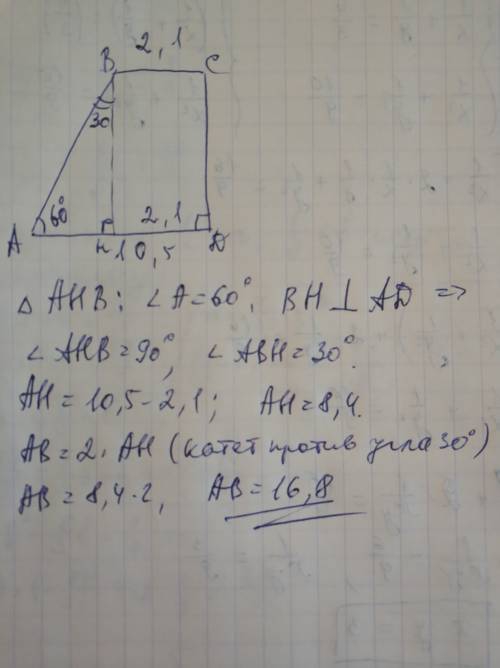 2,1
B C
30
60° 2,1
A H 10,5 D
△ AHB: ∠A=60°. BH⊥AD =>
∠AHB=90°, ∠ABH=30°.
AH=10,5-2,1; AH=8,4.
AB=2·AH (катет против угла 30°)
AB=8,4·2, AB=16,8